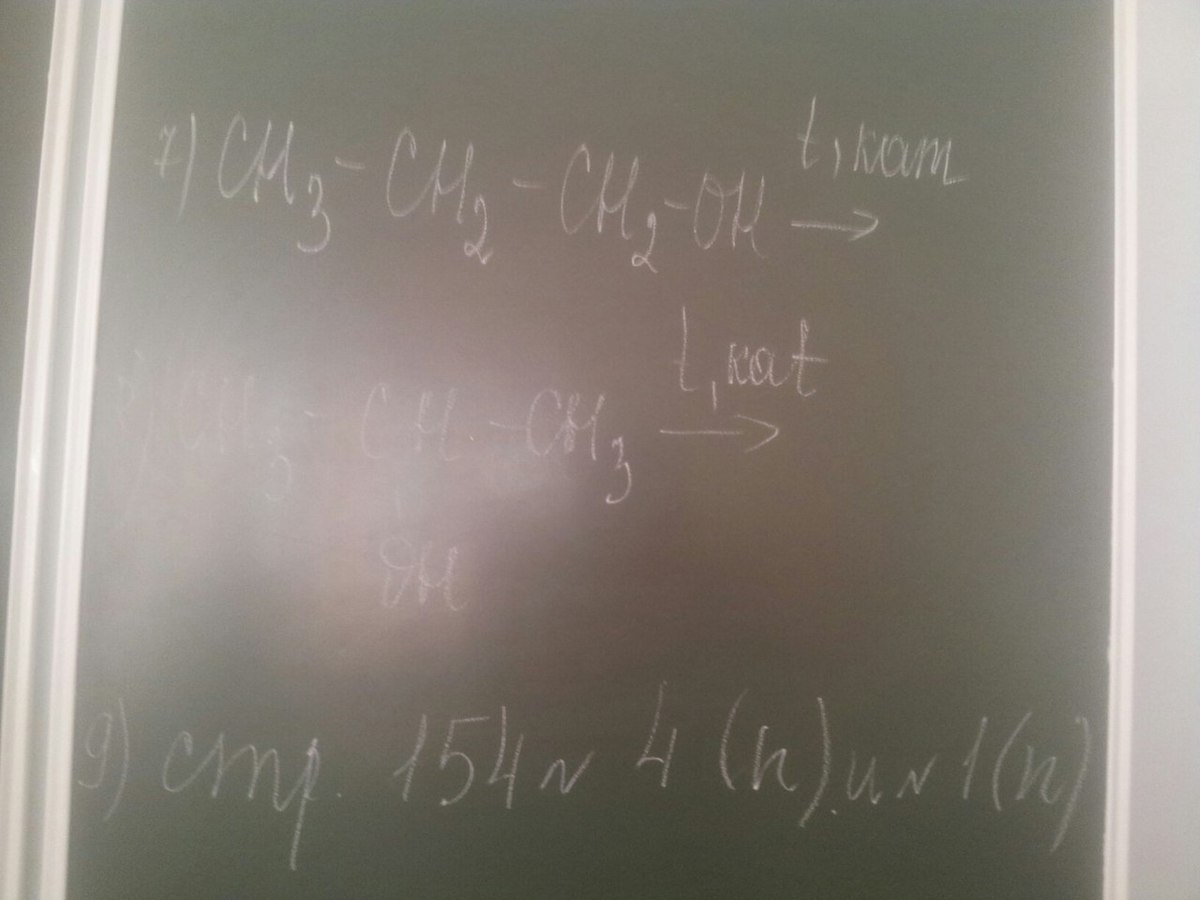 7) CH₃ - CH₂ - CH₂ - OH t, кат →
CH₃ - CH - CH₃ t, кat →
OH
9) стр. 154 № 4 (п). и № 1 (п)